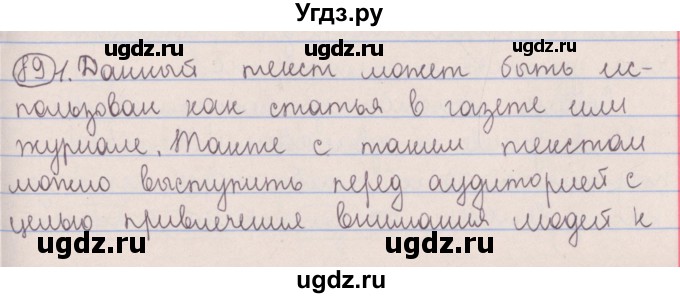 Угдз.ру
ugdz.ru ugdz.ru ugdz.ru
89 1. Данный текст может быть ис-
пользован как статья в газете или
ugdz.ru ugdz.ru
журнале. Также с таким текстом
можно выступить перед аудиторией с
ugdz.ru ugdz.ru ugdz.ru
целью привлечения внимания людей к
ugdz.ru ugdz.ru
ugdz.ru